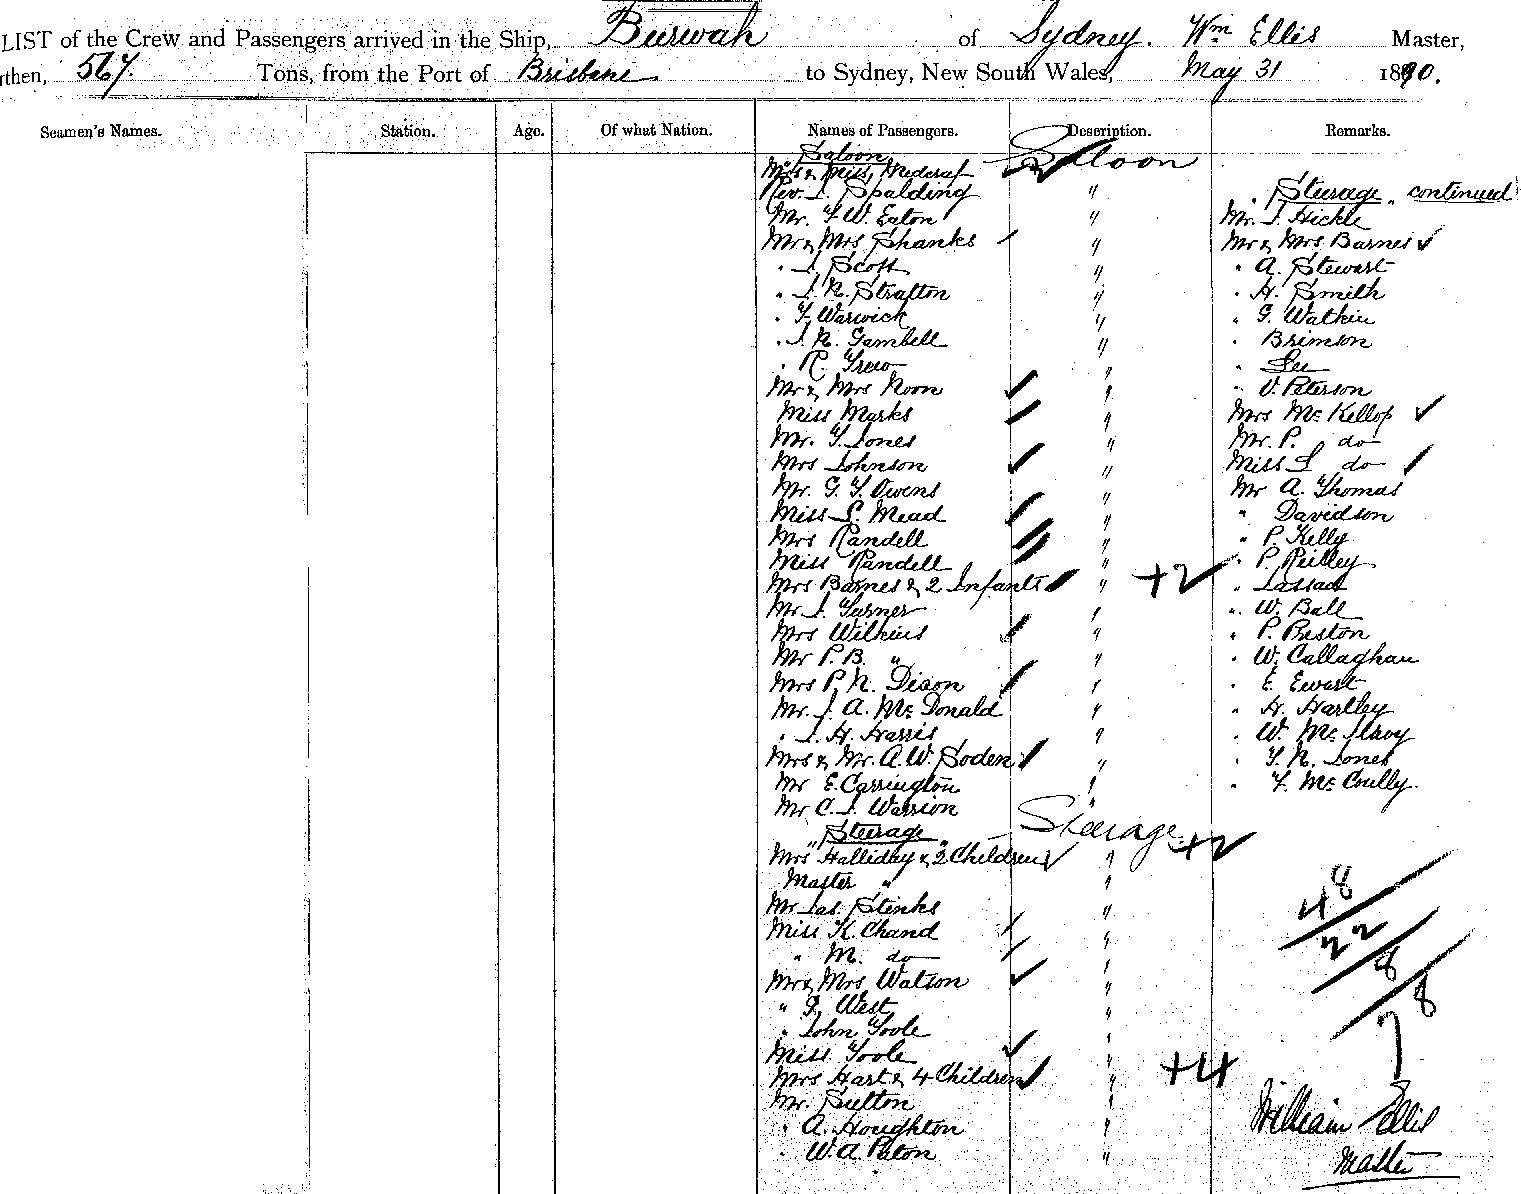 LIST of the Crew and Passengers arrived in the Ship, Burwah of Sydney. Wm Ellis Master,
rthen, 567. Tons, from the Port of Brisbane to Sydney, New South Wales, May 31 1890.
Seamen's Names. Station. Age. Of what Nation. Names of Passengers. Description. Remarks.
Saloon Saloon
Medcraf
Rev. J. Spalding "
Mr. F. W. Eaton "
Mr & Mrs Shanks "
" J. Scott "
" J. N. Strafton "
" F. Warwick "
" J. N. Gambell "
" R. Grew "
Mr & Mrs Noon "
Miss Marks "
Mr. T. Jones "
Mrs Johnson "
Mr. G. T. Owens "
Miss S. Mead "
Mrs Randell "
Miss Randell "
Mrs Barnes & 2 Infants " +2
Mr. J. Turner "
Mrs Wilkins "
Mr P. B. " "
Mrs P. N. Dixon "
Mr. J. A. McDonald "
" J. H. Harris "
Mrs & Mr. A. W. Soden "
Mr E. Carrington "
Mr C. J. Warrion "
"Steerage" Steerage
Mrs Halliday & 2 Children " +2
Master " "
Mr Jas. Stinks "
Miss K. Chand "
" M. do "
Mr & Mrs Watson "
" G. West "
" John Toole "
Miss Toole "
Mrs Hart & 4 Children " +4
Mr. Sutton "
" A. Houghton "
" W. A. Paton "
"Steerage" continued
Mr. J. Hickle
Mr & Mrs Barnes
" A. Stewart
" H. Smith
" G. Watkin
" Brimson
" Lee
" V. Peterson
Mrs McKellop
Mr. P. do
Miss S do
Mr A. Thomas
" Davidson
" P. Kelly
" P. Reilley
" Lassad
" W. Ball
" P. Preston
" W. Callaghan
" E. Ewart
" H. Hartley
" W. McIlroy
" T. N. Jones
" F. McCoully
48
22
8
78
William Ellis
Master